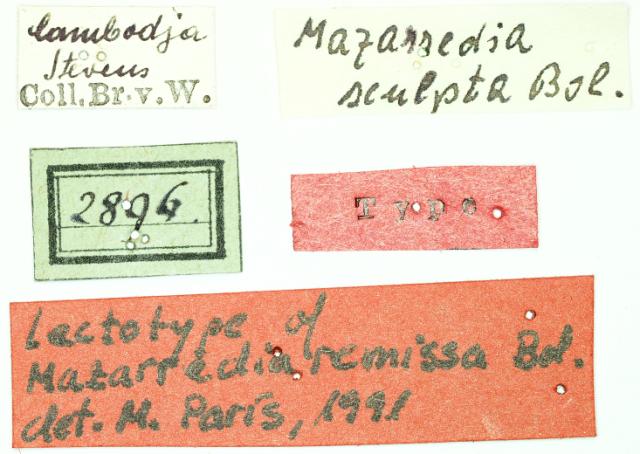 Cambodja
Stevens
Coll. Br. v. W.
Mazarredia
sculpta Bol.
2894.
Type
Lectotype of
Mazarredia remissa Bol.
det. M. París, 1991